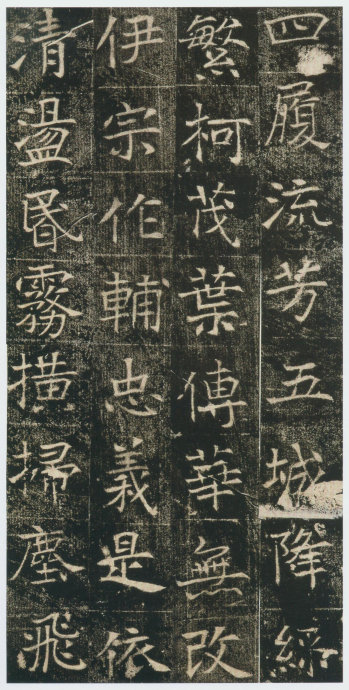 四履流芳五城降綵
繁柯茂葉傳華無改
伊宗作輔忠義是依
清盪昬霧橫掃塵飛